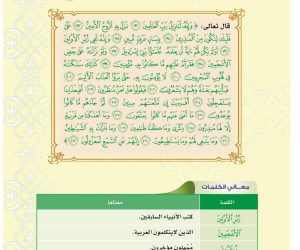 قال تعالى: ﴿ وَإِنَّهُ لَتَنزِيلُ رَبِّ الْعَالَمِينَ نَزَلَ بِهِ الرُّوحُ الْأَمِينُ عَلَىٰ
قَلْبِكَ لِتَكُونَ مِنَ الْمُنذِرِينَ بِلِسَانٍ عَرَبِيٍّ مُّبِينٍ وَإِنَّهُ لَفِي زُبُرِ الْأَوَّلِينَ
أَوَلَمْ يَكُن لَّهُمْ آيَةً أَن يَعْلَمَهُ عُلَمَاءُ بَنِي إِسْرَائِيلَ وَلَوْ نَزَّلْنَاهُ عَلَىٰ بَعْضِ
الْأَعْجَمِينَ فَقَرَأَهُ عَلَيْهِم مَّا كَانُوا بِهِ مُؤْمِنِينَ كَذَٰلِكَ سَلَكْنَاهُ
فِي قُلُوبِ الْمُجْرِمِينَ لَا يُؤْمِنُونَ بِهِ حَتَّىٰ يَرَوُا الْعَذَابَ الْأَلِيمَ
فَيَأْتِيَهُم بَغْتَةً وَهُمْ لَا يَشْعُرُونَ فَيَقُولُوا هَلْ نَحْنُ مُنظَرُونَ أَفَبِعَذَابِنَا
يَسْتَعْجِلُونَ أَفَرَأَيْتَ إِن مَّتَّعْنَاهُمْ سِنِينَ ثُمَّ جَاءَهُم مَّا كَانُوا
يُوعَدُونَ مَا أَغْنَىٰ عَنْهُم مَّا كَانُوا يُمَتَّعُونَ وَمَا أَهْلَكْنَا مِن قَرْيَةٍ
إِلَّا لَهَا مُنذِرُونَ ذِكْرَىٰ وَمَا كُنَّا ظَالِمِينَ وَمَا تَنَزَّلَتْ بِهِ الشَّيَاطِينُ
وَمَا يَنبَغِي لَهُمْ وَمَا يَسْتَطِيعُونَ إِنَّهُمْ عَنِ السَّمْعِ لَمَعْزُولُونَ ﴾
معاني الكلمات
الكلمة معناها
زُبُرِ الْأَوَّلِينَ كتب الأنبياء السابقين.
الْأَعْجَمِينَ الذين لايتكلمون العربية.
مُنظَرُونَ مُمْهلون مؤخرون.